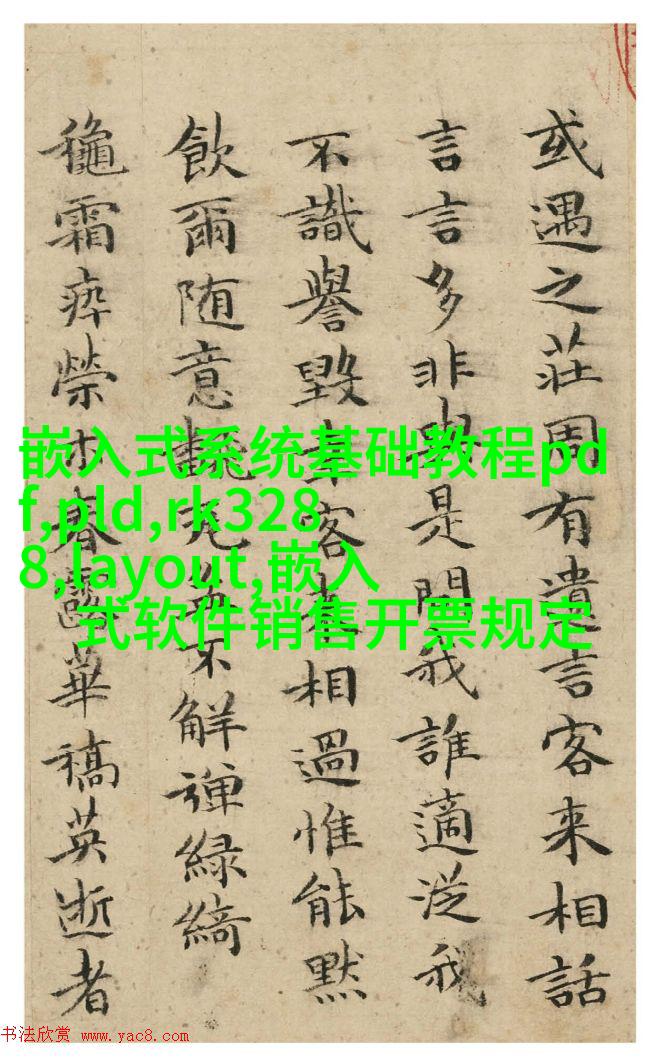 或遇之莊周有遺言客来相話
言言多非是問我誰適從我
不識譽毀客相過惟能默
飲爾随意不解弾緑綺
龝霜瘁榮木春露華槁英逝者
嵌入式系统基础教程pd
f,pld,rk328
8,layout,嵌入
式软件销售开票规定
书法欣赏 www.yac8.com